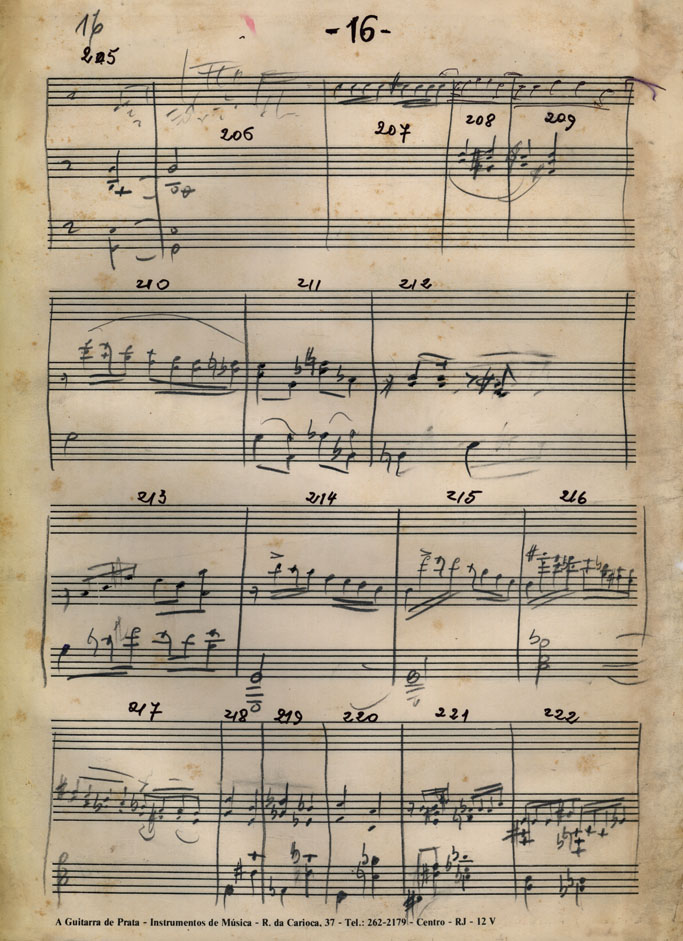 16
-16-
205
206 207 208 209
210 211 212
213 214 215 216
217 218 219 220 221 222
A Guitarra de Prata - Instrumentos de Música - R. da Carioca, 37 - Tel.: 262-2179 - Centro - RJ - 12 V